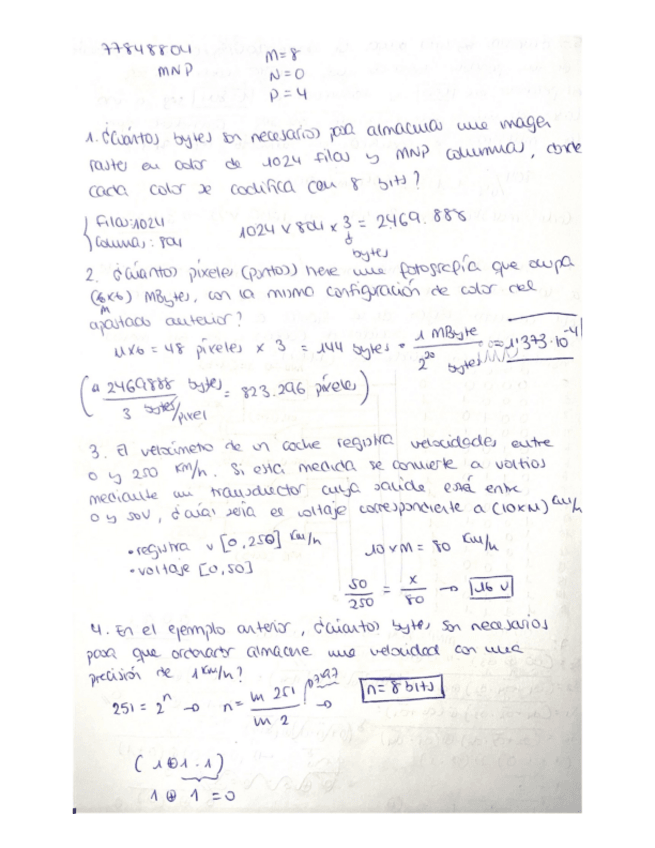 77848804
MNP
M=8
N=0
P=4
1. ¿Cuántos bytes son necesarios para almacenar una imagen
raster en color de 1024 filas y MNP columnas, donde
cada color se codifica con 8 bits?
Filas: 1024
Columnas: 804
1024 x 804 x 3 = 2469.888
bytes
2. ¿Cuántos píxeles (puntos) tiene una fotografía que ocupa
(6x6) MBytes, con la misma configuración de color del
M
apartado anterior?
= 48 píxeles x 3 = 144 bytes = 1 MByte / 2^20 bytes = 1'373·10^-4
(2469888 bytes / 3 bytes/pixel = 823.296 píxeles)
3. El velocímetro de un coche registra velocidades entre
0 y 250 km/h. Si esta medida se convierte a voltios
mediante un transductor cuya salida está entre
0 y 50V, ¿cuál sería el voltaje correspondiente a (10xM) km/h
• registra v [0,250] km/h
• voltaje [0,50]
10xM = 80 km/h
50/250 = x/80 → 16 V
4. En el ejemplo anterior, ¿cuántos bytes son necesarios
para que ordenador almacene una velocidad con una
precisión de 1 km/h?
251 = 2^n → n = ln 251 / ln 2 → n = 8 bits
(1⊕1·1)
1 ⊕ 1 = 0